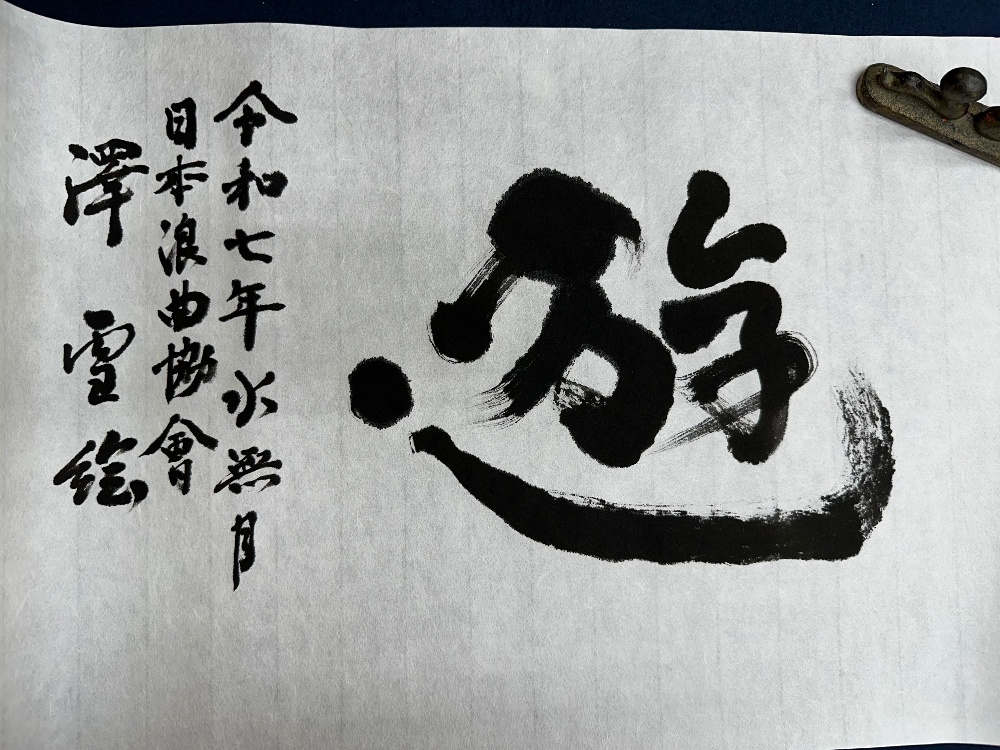 遊
令和七年水無月
日本浪曲協會
澤雪絵